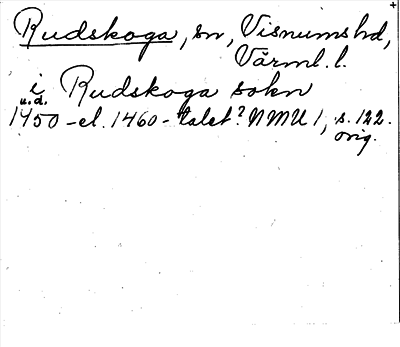 Rudskoga, sn, Visnums hd,
Värml. l.
i Rudskoga sokn
u.d.
1450-el. 1460-talet? NMU 1, s. 122.
orig.